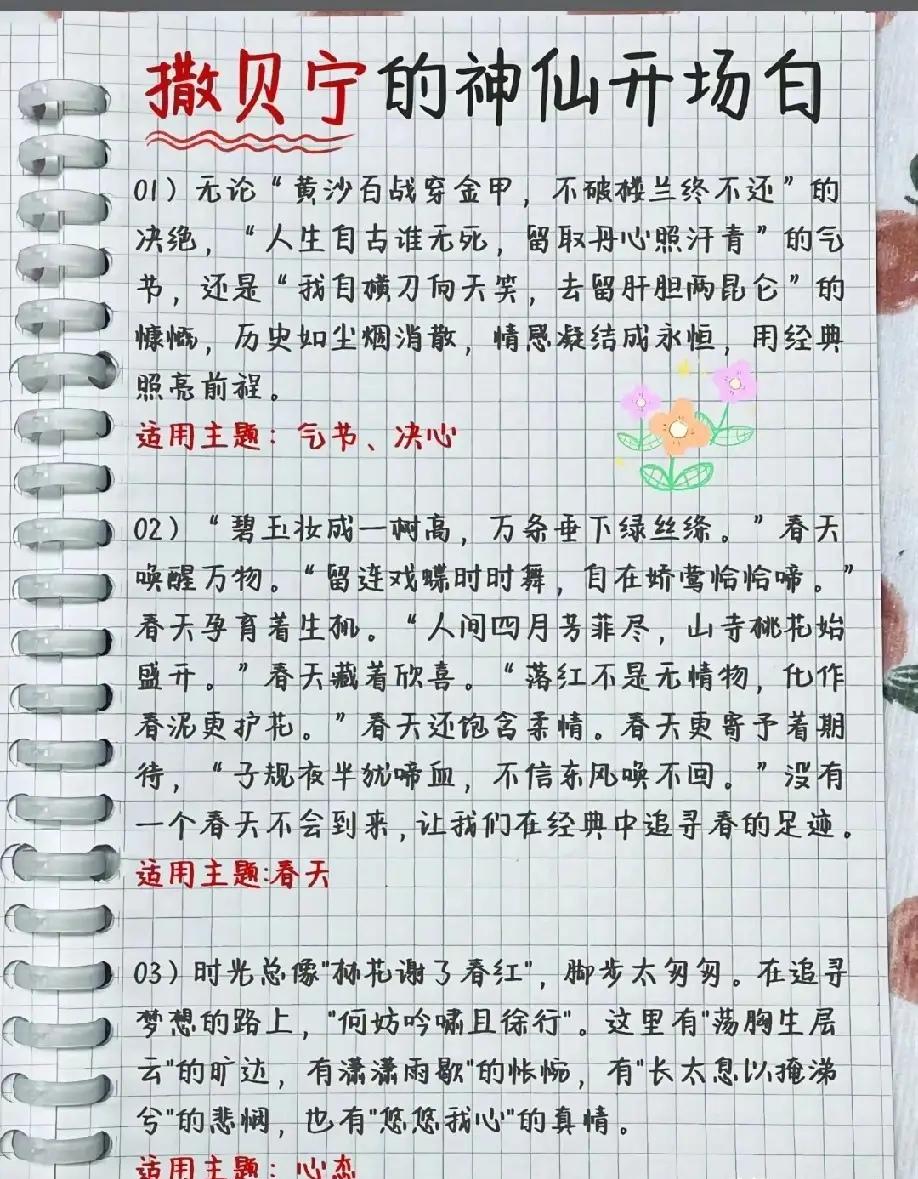 撒贝宁的神仙开场白
01）无论“黄沙百战穿金甲，不破楼兰终不还”的
决绝，“人生自古谁无死，留取丹心照汗青”的气
节，还是“我自横刀向天笑，去留肝胆两昆仑”的
慷慨，历史如尘烟消散，情感凝结成永恒，用经典
照亮前程。
适用主题：气节、决心
02）“碧玉妆成一树高，万条垂下绿丝绦。”春天
唤醒万物。“留连戏蝶时时舞，自在娇莺恰恰啼。”
春天孕育着生机。“人间四月芳菲尽，山寺桃花始
盛开。”春天藏着欣喜。“落红不是无情物，化作
春泥更护花。”春天还饱含柔情。春天更寄予着期
待，“子规夜半犹啼血，不信东风唤不回。”没有
一个春天不会到来，让我们在经典中追寻春的足迹。
适用主题:春天
03）时光总像"林花谢了春红"，脚步太匆匆。在追寻
梦想的路上，"何妨吟啸且徐行"。这里有"荡胸生层
云"的旷达，有潇潇雨歇"的怅惋，有"长太息以掩涕
兮"的悲悯，也有"悠悠我心"的真情。
适用主题：心态